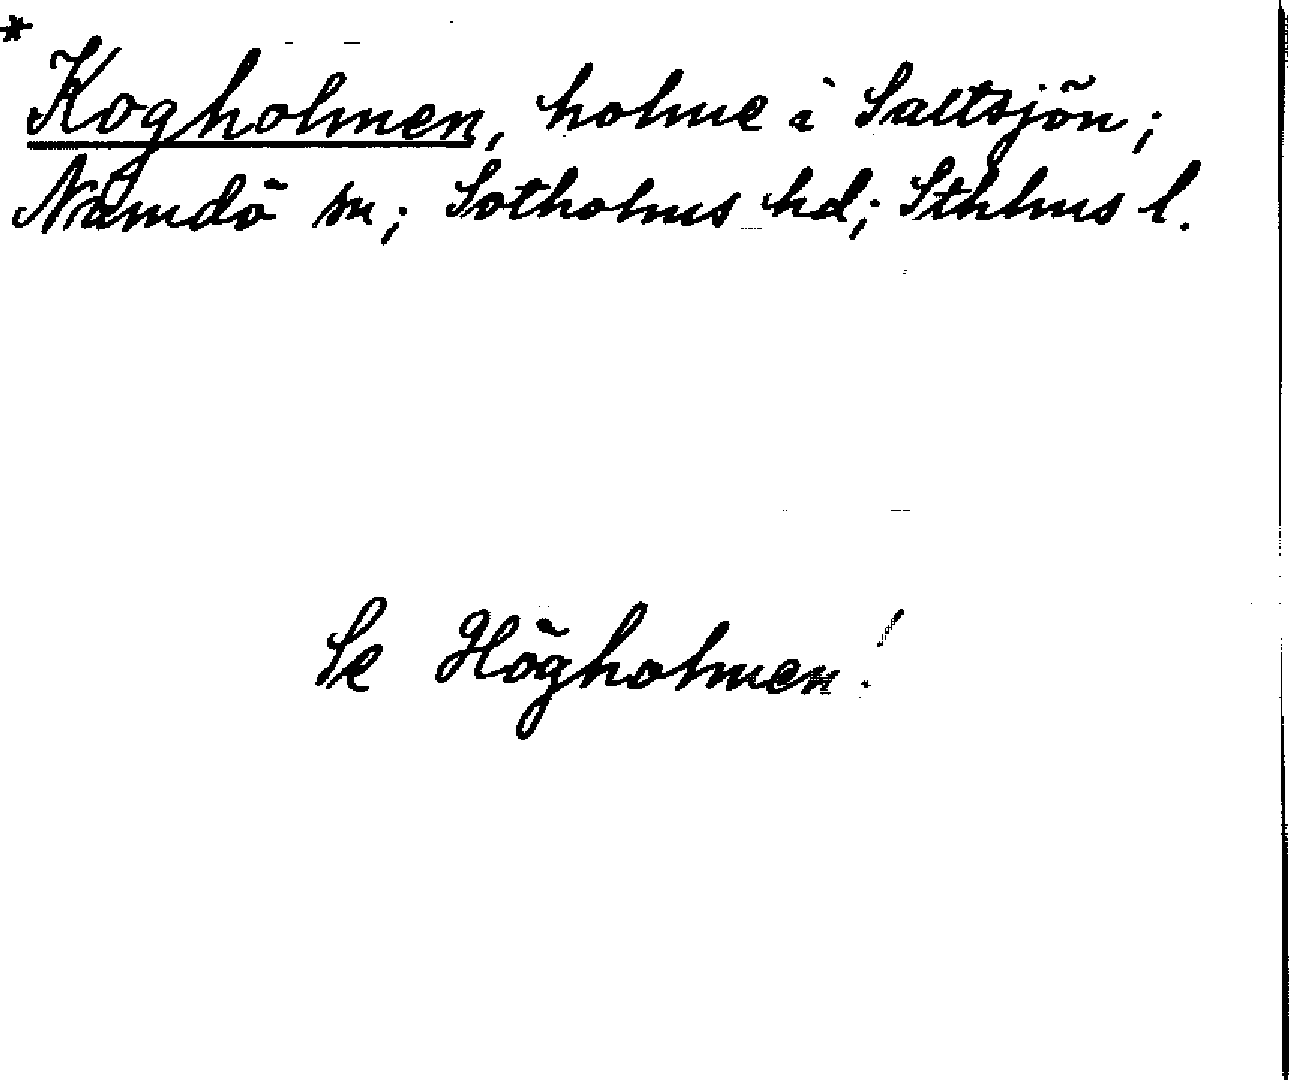 * Kogholmen, holme i Saltsjön;
Nämdö sn; Sotholms hd; Sthlms l.
Se Högholmen!